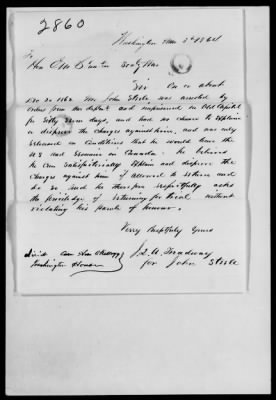 2860
Washington Mar 3d 1864
To
Hon E M Stanton Secty War
Sir On or about
Dec 20 1862 Mr John Steele was arrested by
orders from War dept and imprisoned in Old Capitol
for Sixty seven days, and had no chance to explain
or disprove the charges against him, and was only
released on conditions that he would leave the
US and remain in Canada. He believes
he can satisfactorily explain and disprove the
charges against him if allowed to return and
do so and he therefore respectfully asks
the privilege of returning for trial without
violating his parole of honour.
Very Respectfully Yours
for John Steele
Washington House